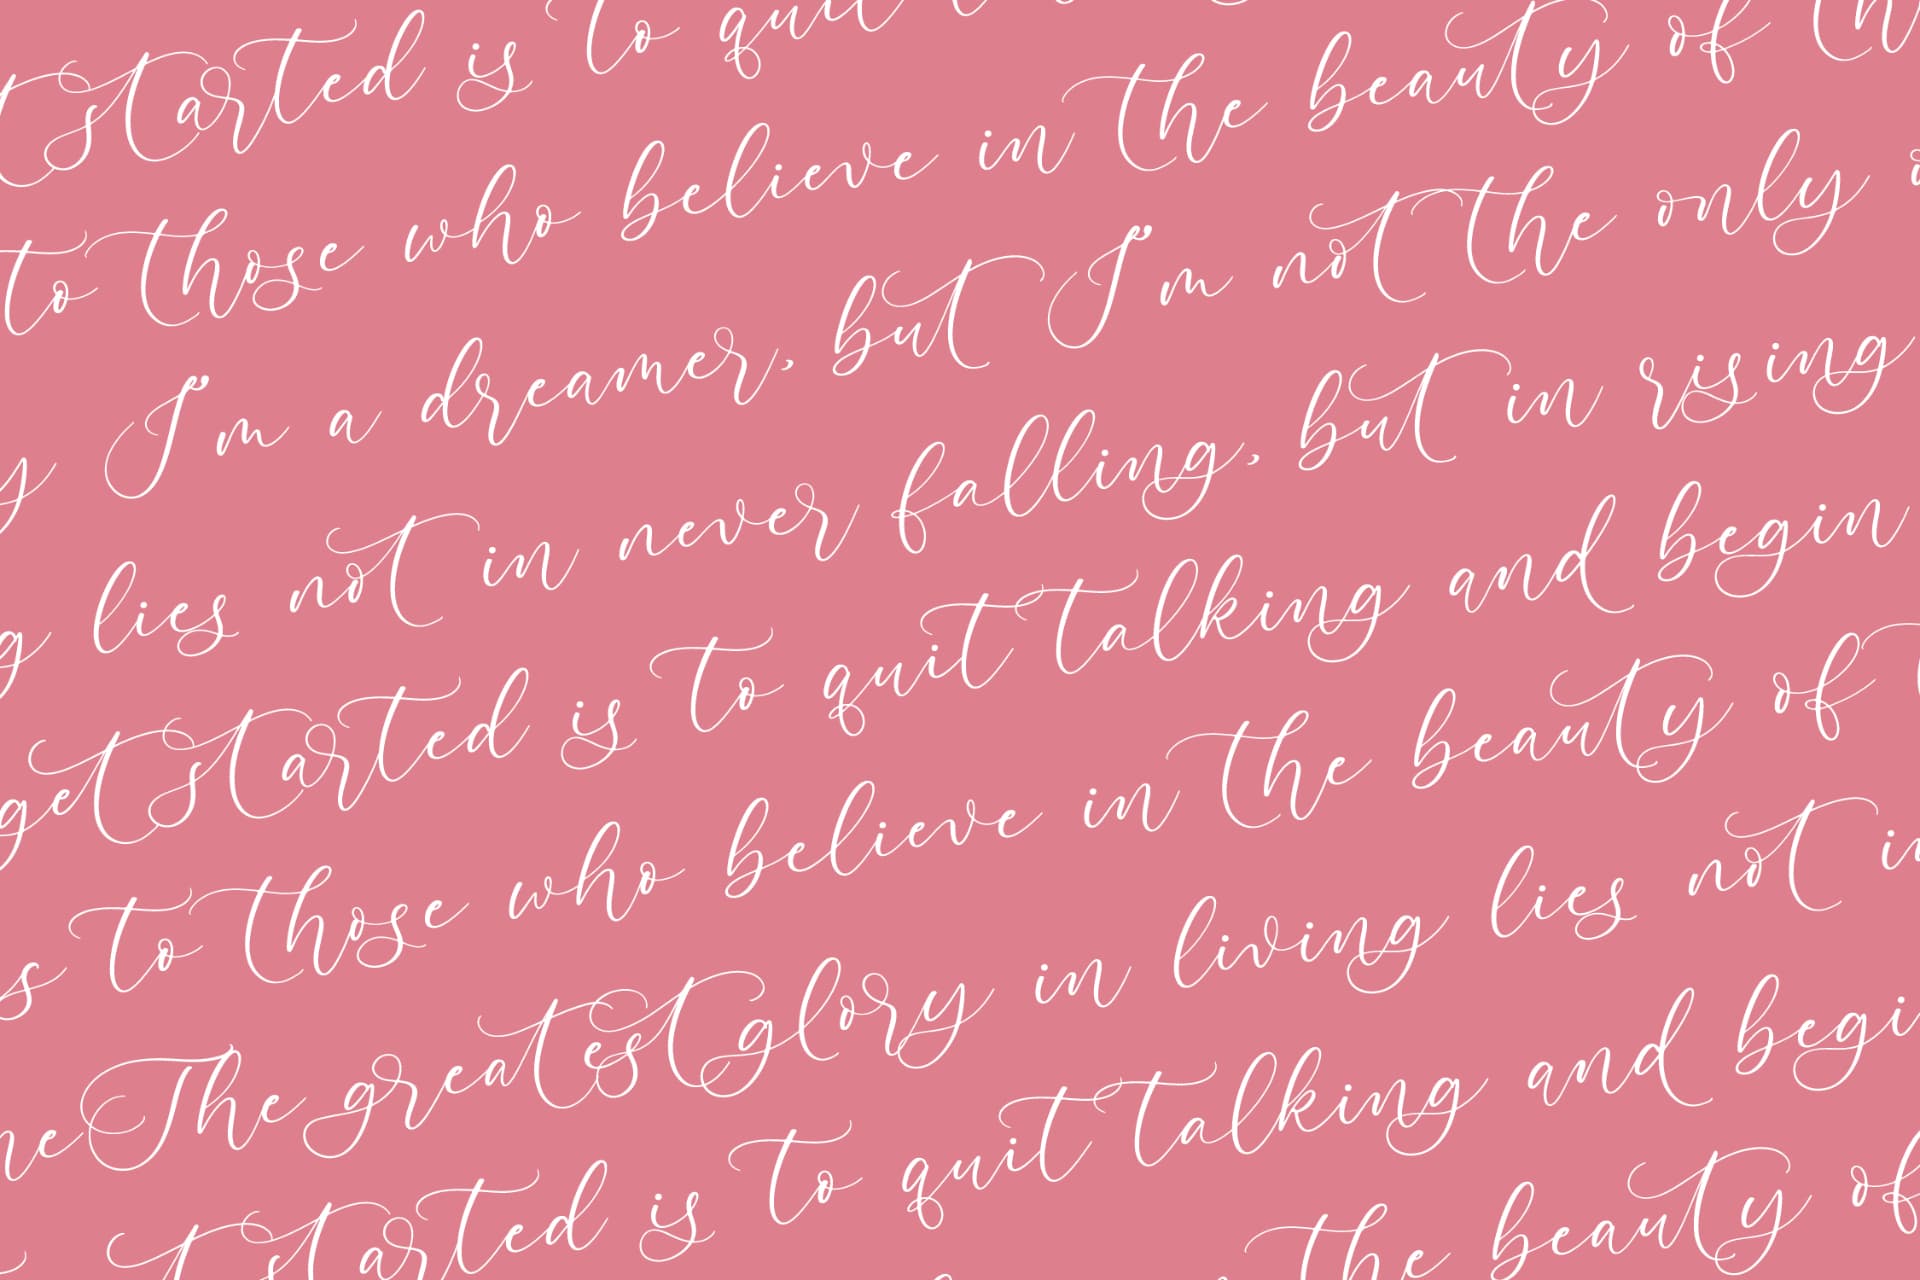 started is to quit
to those who believe in the beauty of th
I'm a dreamer, but I'm not the only
lies not in never falling, but in rising
get started is to quit talking and begin
s to those who believe in the beauty of
The greatest glory in living lies not in
started is to quit talking and begi
the beauty of